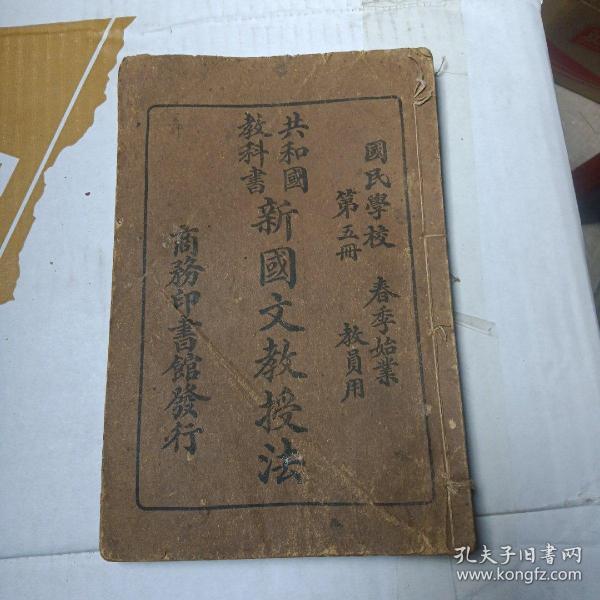 國民學校 春季始業
第五冊 教員用
共和國
教科書
新國文教授法
商務印書館發行
孔夫子旧书网
www.kongfz.com